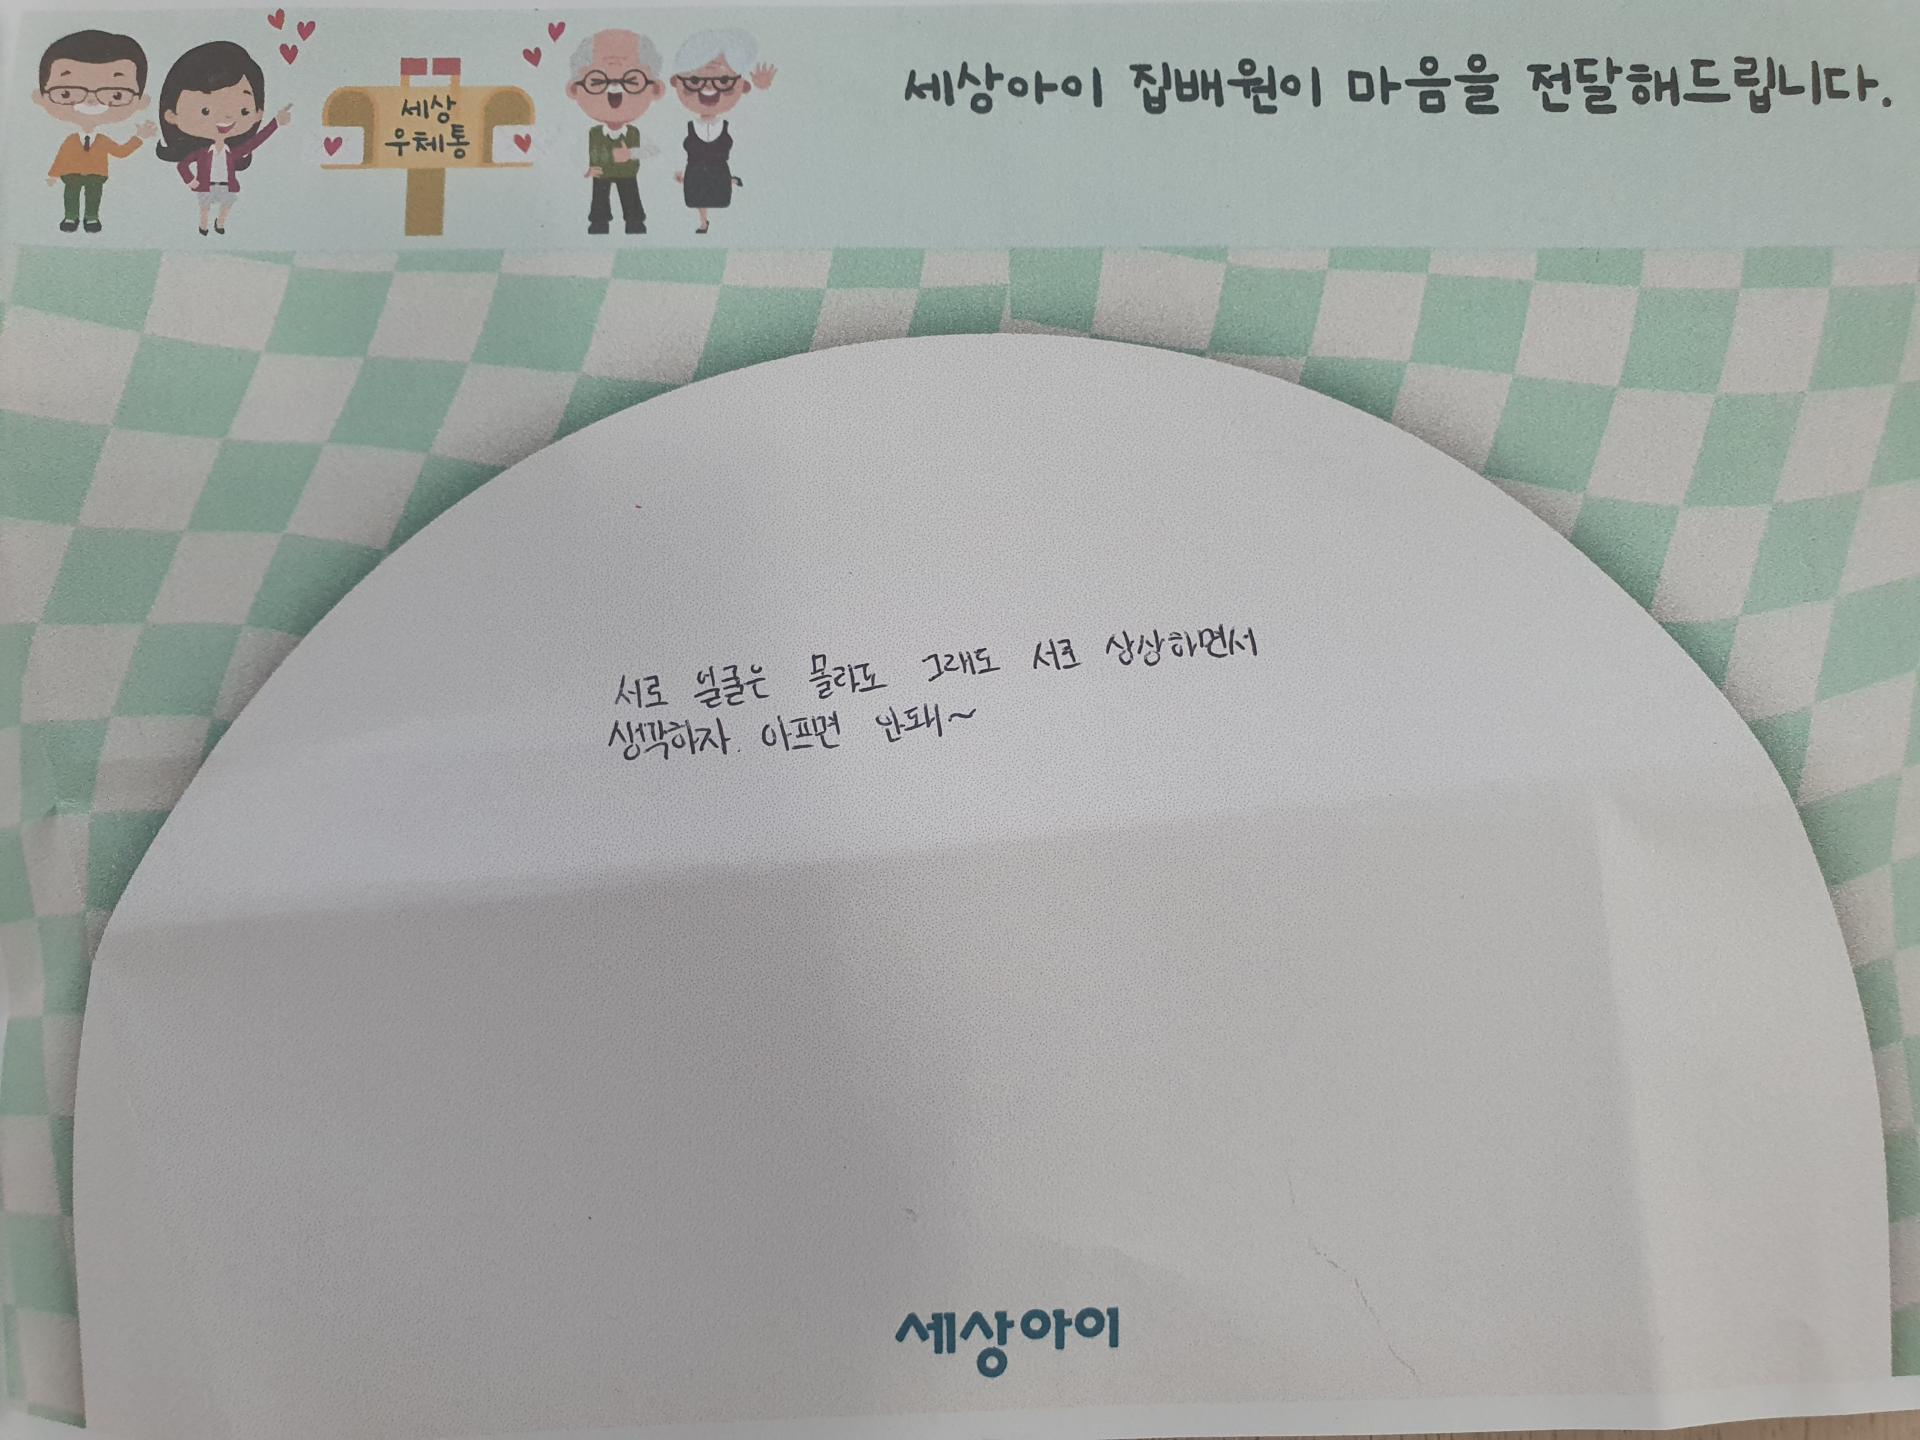 세상아이 집배원이 마음을 전달해드립니다.
세상
우체통
서로 얼굴은 몰라도 그래도 서로 상상하면서
생각하자. 아프면 안돼~
세상아이